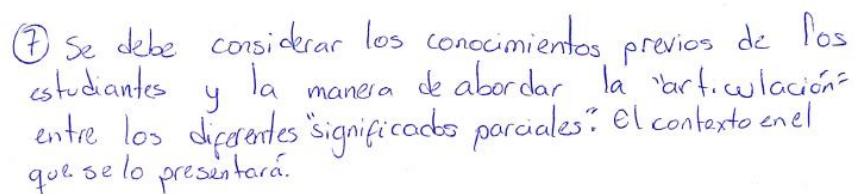 ⑦ Se debe considerar los conocimientos previos de los
estudiantes y la manera de abordar la "articulación"
entre los diferentes "significados parciales". El contexto en el
que se lo presentará.